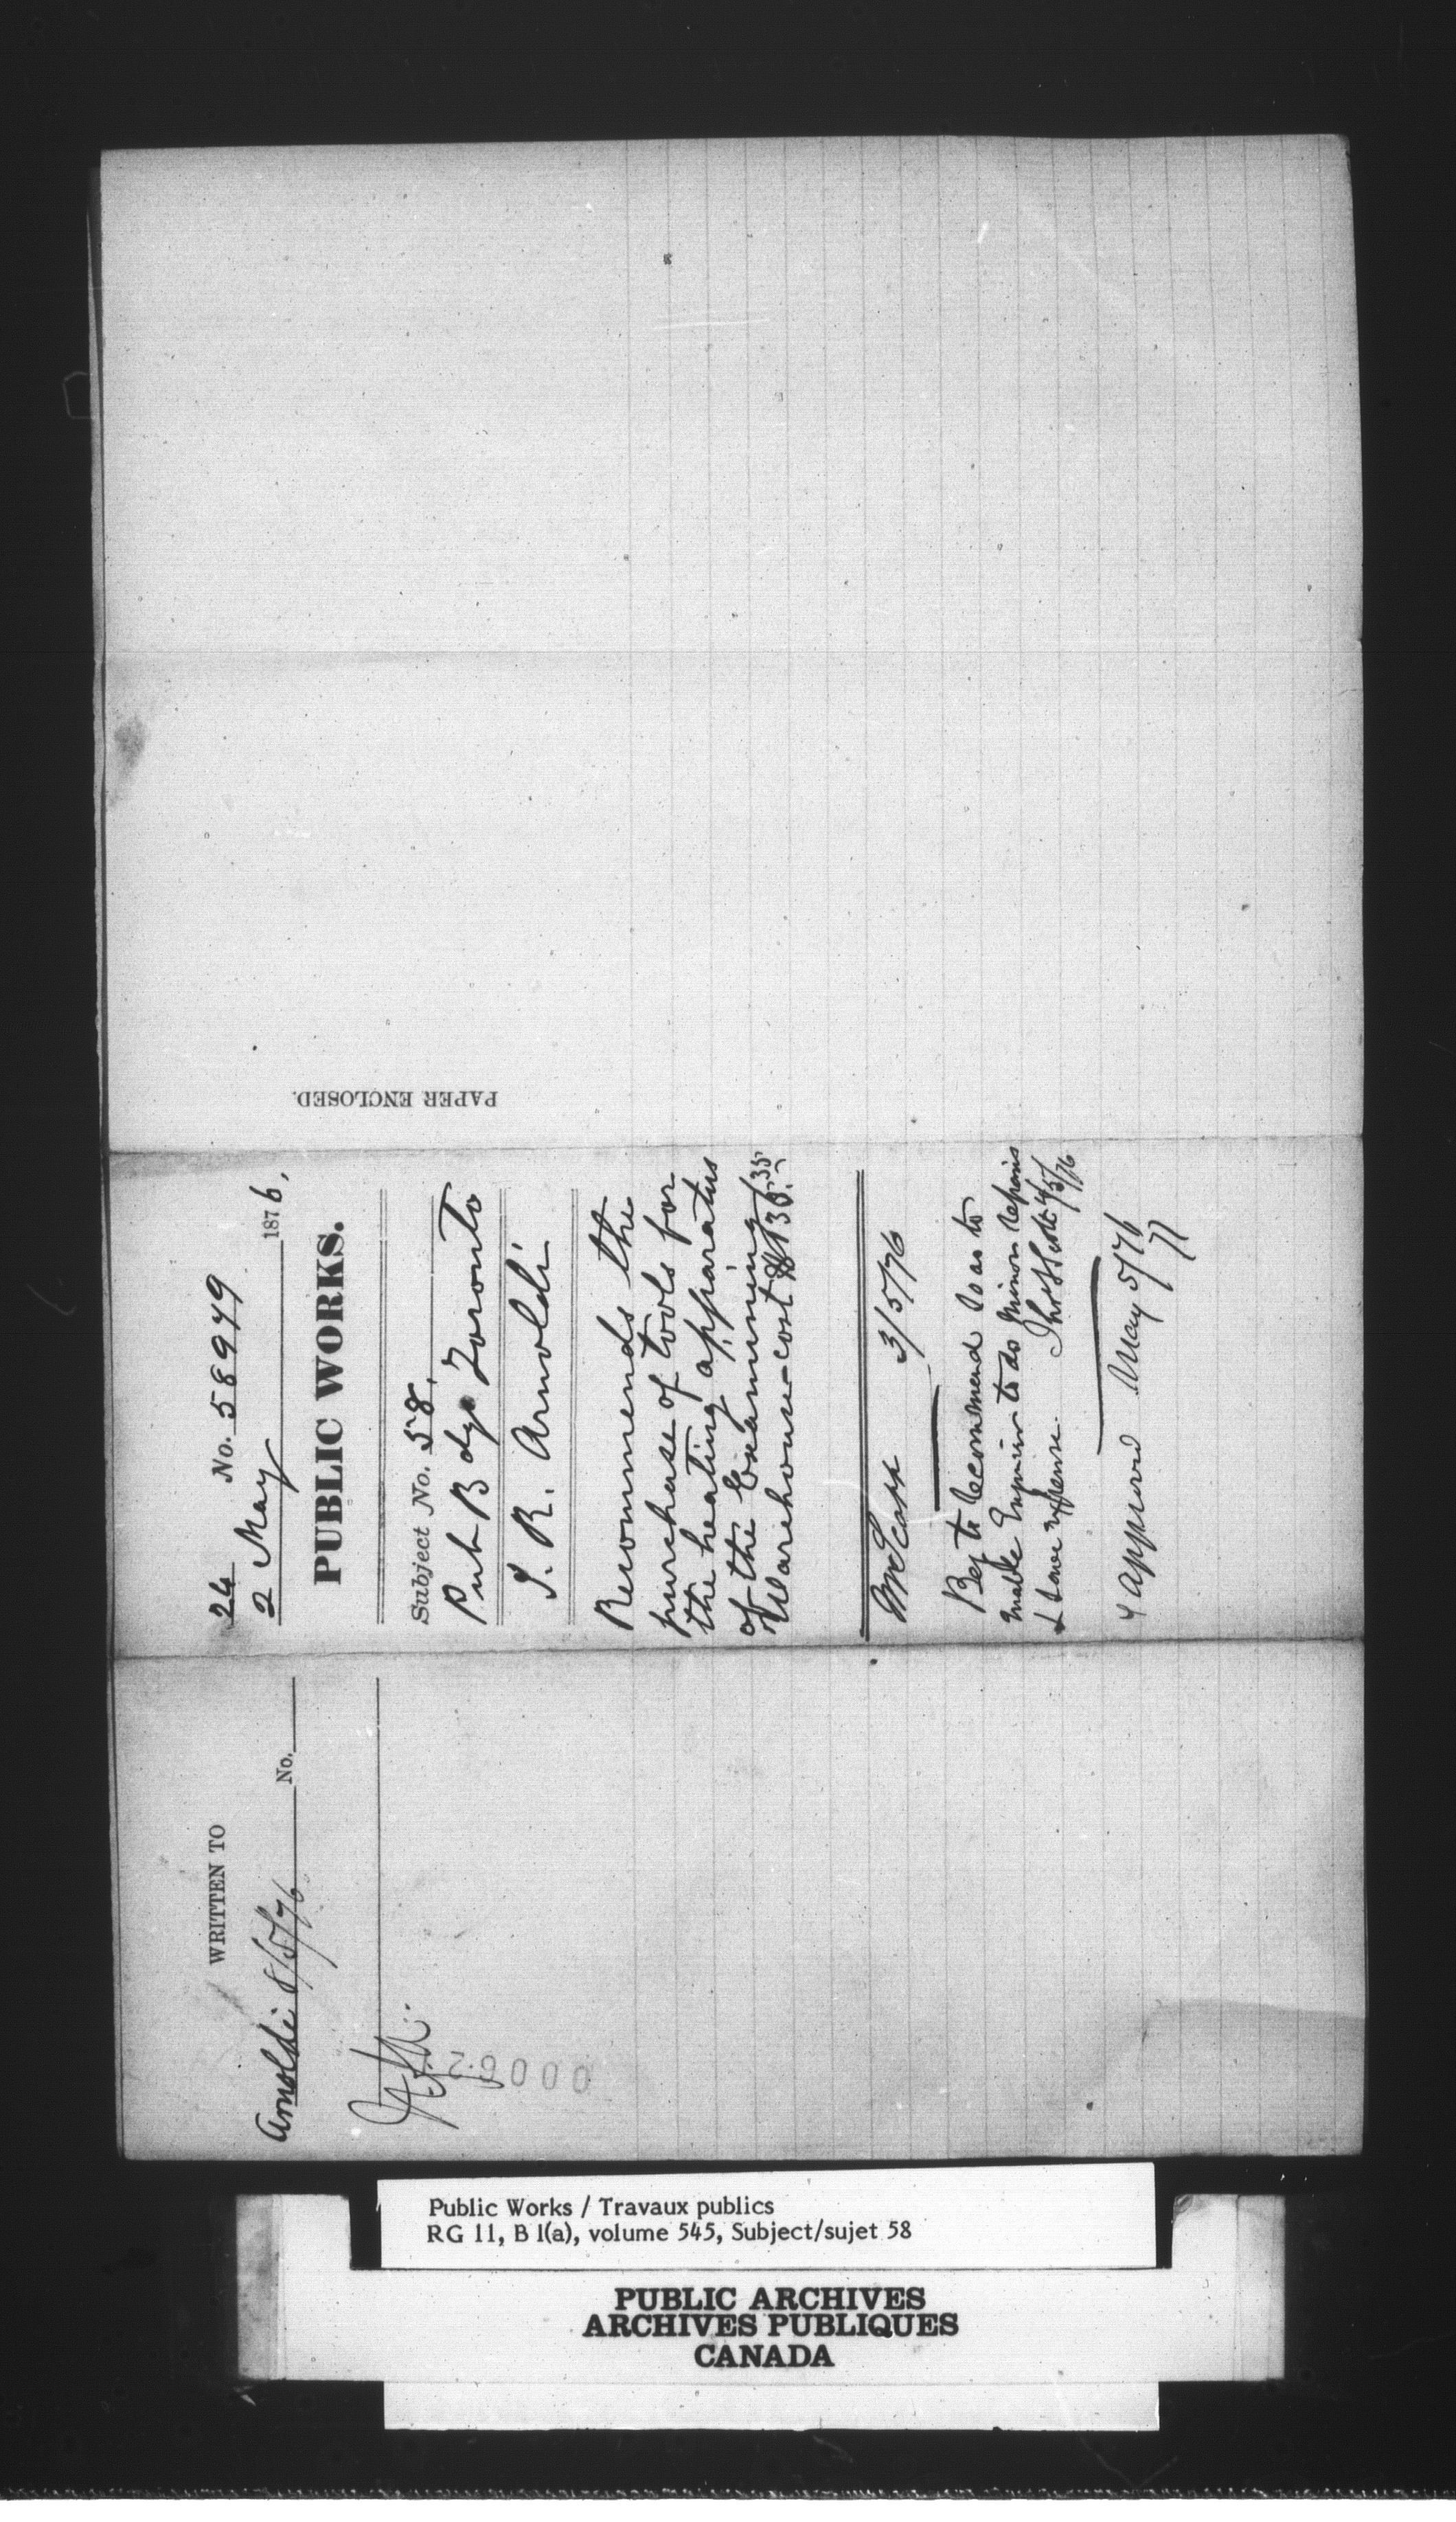 24 No. 58949
2 May 1876,
PUBLIC WORKS.
Subject No. 58,
Pub Bdgs Toronto
J. R. Arnoldi
Recommends the
purchase of tools for
the heating apparatus
of the Examining
Warehouse - cost $135.
Mr Scott 3/5/76
Beg to recommend so as to
enable Engineer to do minor repairs
& save expense. Thos S Scott 4/5/76
Approved May 5/76
PAPER ENCLOSED.
WRITTEN TO
Arnoldi 8/5/76 No.
Public Works / Travaux publics
RG 11, B 1(a), volume 545, Subject/sujet 58
PUBLIC ARCHIVES
ARCHIVES PUBLIQUES
CANADA